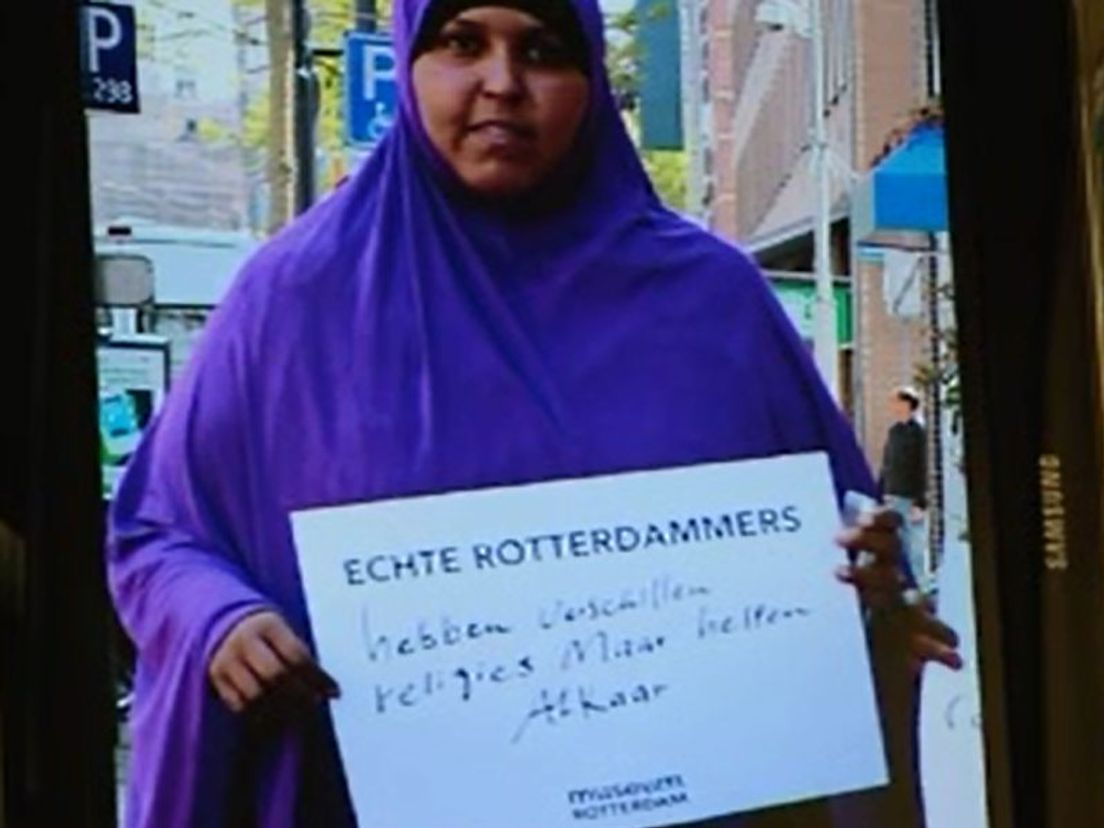 P
298
P
ECHTE ROTTERDAMMERS
hebben verschillen
religies Maar helpen
Alkaar
museum
ROTTERDAM
SAMSUNG